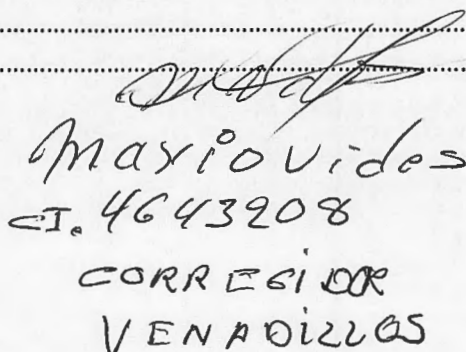 Mario Vides
CI. 4643208
CORREGIDOR
VENADILLOS